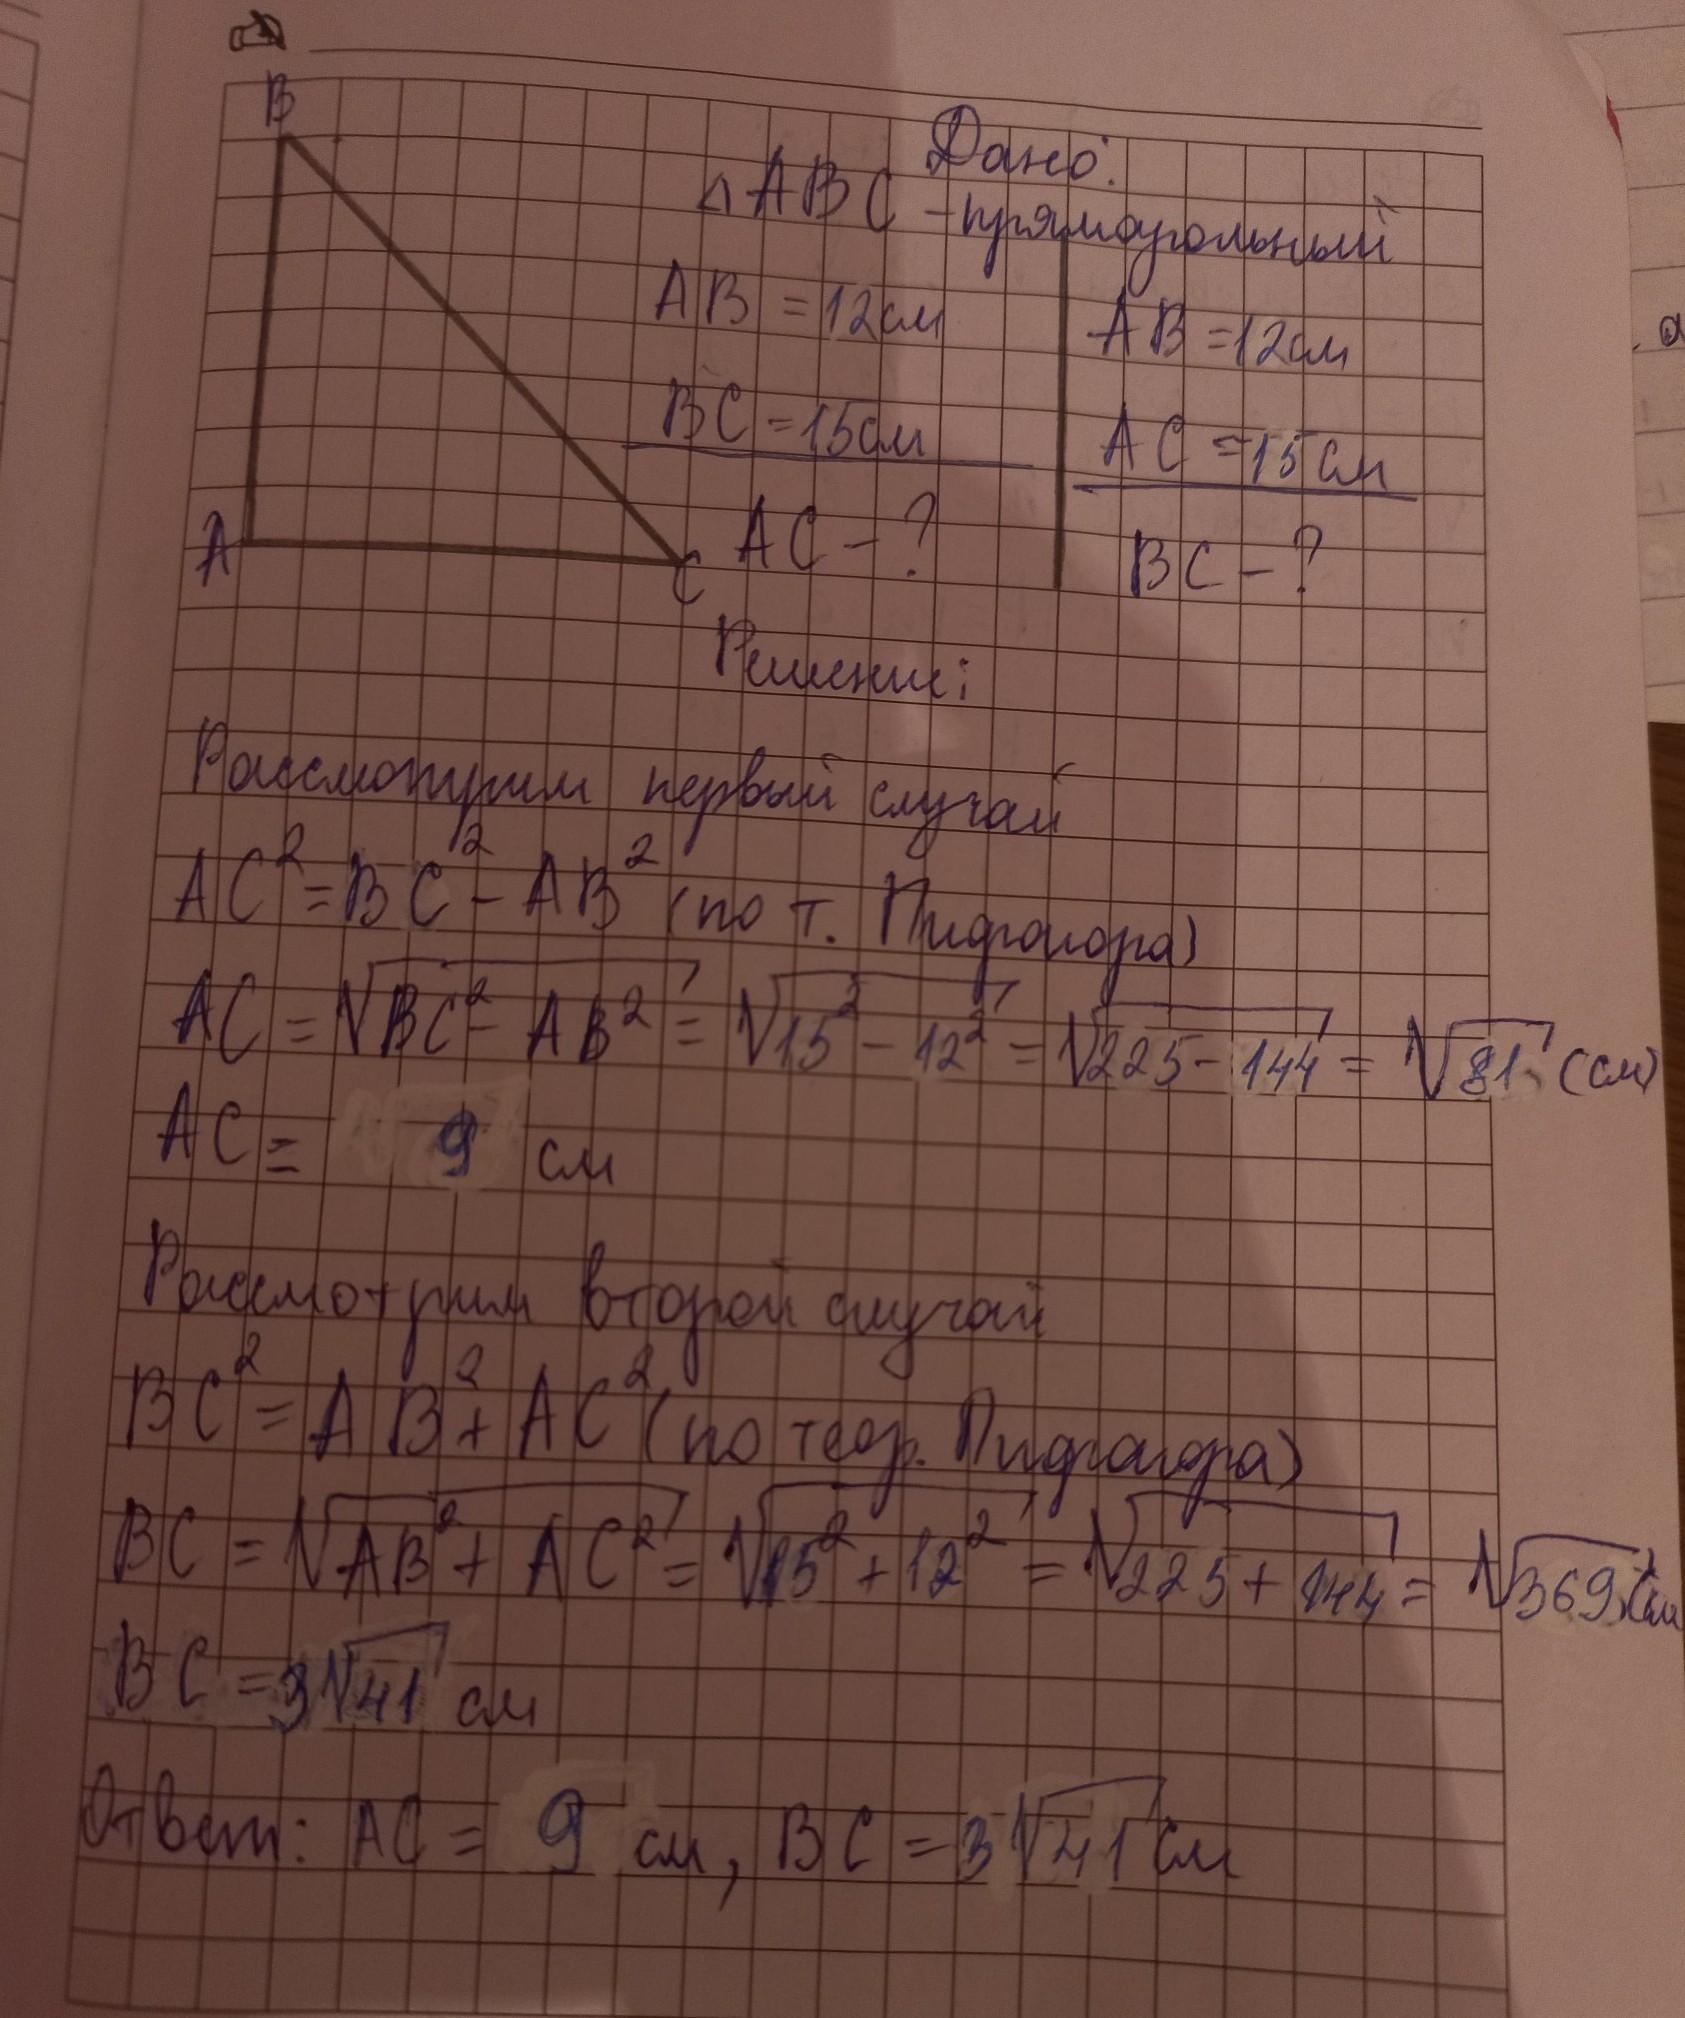 B
Дано:
△ABC - прямоугольный
AB = 12см
BC = 15см
AC - ?
AB = 12см
AC = 15см
BC - ?
A
C
Решение:
Рассмотрим первый случай
AC² = BC² - AB² (по т. Пифагора)
AC = √BC² - AB² = √15² - 12² = √225 - 144 = √81 (см)
AC = 9 см
Рассмотрим второй случай
BC² = AB² + AC² (по теор. Пифагора)
BC = √AB² + AC² = √15² + 12² = √225 + 144 = √369 см
BC = 3√41 см
Ответ: AC = 9 см, BC = 3√41 см